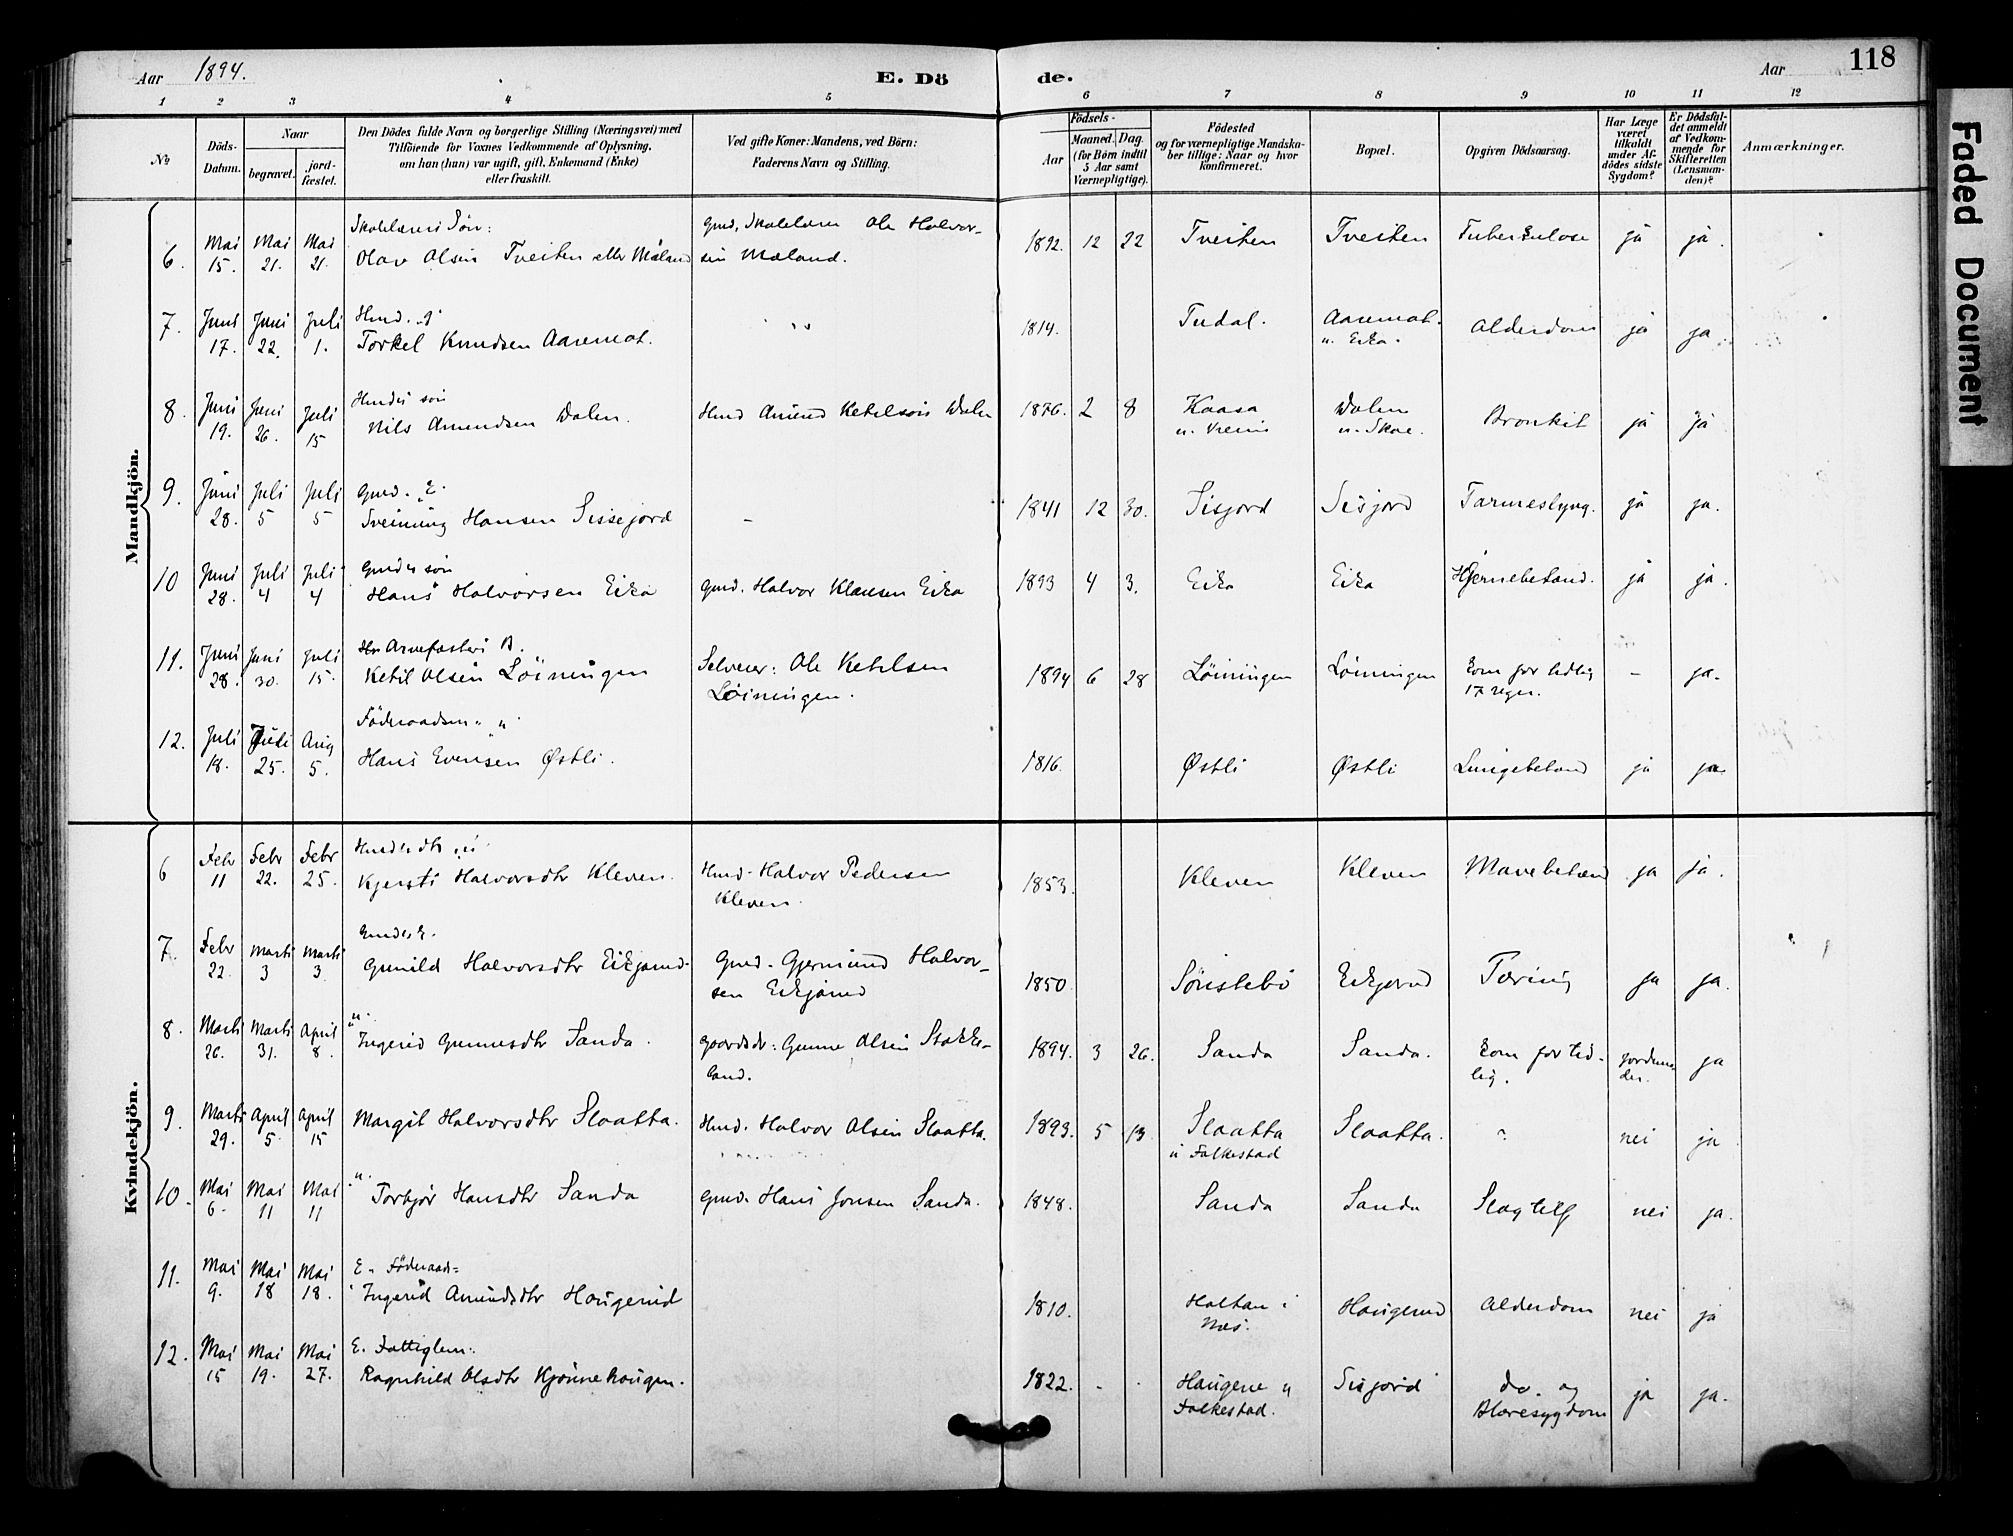 Aar 1894.
E. Dö
de.
Aar
118
Faded Document
1 2 3 4 5 6 7 8 9 10 11 12
No
Döds-Datum.
Naar
begravet.
jord-fæstet.
Den Dödes fulde Navn og borgerlige Stilling (Næringsvei) med
Tilföiende for Voxnes Vedkommende af Oplysning,
om han (hun) var ugift, gift, Enkemand (Enke)
eller fraskilt.
Ved gifte Koner: Mandens, ved Börn:
Faderens Navn og Stilling.
Födsels-
Aar
Maaned. Dag.
(for Børn indtil
5 Aar samt
Værnepligtige).
Födested
og for værnepligtige Mandska-
ber tillige: Naar og hvor
konfirmeret.
Bopæl.
Opgiven Dödsaarsag.
Har Læge
været
tilkaldt
under Af-
dödes sidste
Sygdom?
Er Dödsfal-
det anmeldt
af Vedkom-
mende for
Skifteretten
(Lensman-
den)?
Anmærkninger.
Mandkjön.
6. Mai 15. Mai 21. Mai 21. Skolelærers Søn:
Olav Olsen Tveiten eller Mæland
Gmd. Skolelærer Ole Halvor-
sen Mæland.
1892. 12 22 Tveiten Tveiten Tuberkulose ja ja.
7. Juni 17. Juni 22. Juli 1. Hmd.
Torkel Knudsen Aaremot.
1814. Tudal. Aaremot.
u. Eika.
Alderdom ja ja
8. Juni 19. Juni 26. Juli 15 Hmds søn
Nils Amundsen Dalen.
Hmd Amund Ketelsen Dalen
1876. 2 8 Kaasa
Dalen
u. Skoe.
Bronkit ja ja
9. Juni 28. Juli 5 Juli 5 Gmd. E.
Sveinung Hansen Sissejord
-
1841 12 30. Sisjord Sisjord Tarmeslyng. ja ja.
10 Juni 28. Juli 4 Juli 4 Gmds søn
Hans Halvorsen Eika
Gmd. Halvor Klausen Eika
1893 4 3. Eika Eika Hjernebetænd. ja ja.
11. Juni 28. Juni 30. Juli 15. Arvefæsters B.
Ketil Olsen Löiningen
Selveier: Ole Ketelsen
Löiningen.
1894 6 28 Löiningen Löiningen Kom for tidlig
- ja.
12. Juli 18. Juli 25. Aug 5. Föderaadsm.
Hans Evensen Østli.
1816. Østli Østli Lungebetænd ja ja
Kvindekjön.
6 Febr 11 Febr 22. Febr 25. Hmds dtr
Kjersti Halvorsdtr Kleven.
Hmd. Halvor Pedersen
Kleven.
1853. Kleven Kleven Mavebetænd ja ja.
7. Febr 22. Marts 3 Marts 3 Gmds E.
Gunild Halvorsdtr Eikjarud.
Gmd. Gjermund Halvor-
sen Eikjarud
1850 Sönstebö Eikjarud Tæring ja ja.
8. Marts 26. Marts 31. April 8. Ingerid Gunnesdtr Sanda.
Gaardbr: Gunne Olsen Stokke-
land.
1894. 3 26. Sanda Sanda. Kom for tid-
lig.
Jordemo-
der.
ja
9. Marts 29. April 5 April 15 Margit Halvorsdtr Slaatta.
Hmd. Halvor Olsen Slaatta.
1893. 5 13 Slaatta
u Folkestad
Slaatta. nei ja
10. Mai 6. Mai 11 Mai 11 Torbjør Hansdtr Sanda
Gmd. Hans Jonsen Sanda.
1848. Sanda Sanda Slagtilf nei ja.
11. Mai 9. Mai 18 Mai 18. E. Föderaads=
Ingerid Amundsdtr Haugerud
1810. Holtan i
Næs.
Haugerud Alderdom nei ja
12. Mai 15 Mai 19. Mai 27. E. Fattiglem:
Ragnhild Olsdtr Kjönnehaugen.
1822. Haugene u
Folkestad.
Sisjord do. og
Blæresygdom
ja ja.